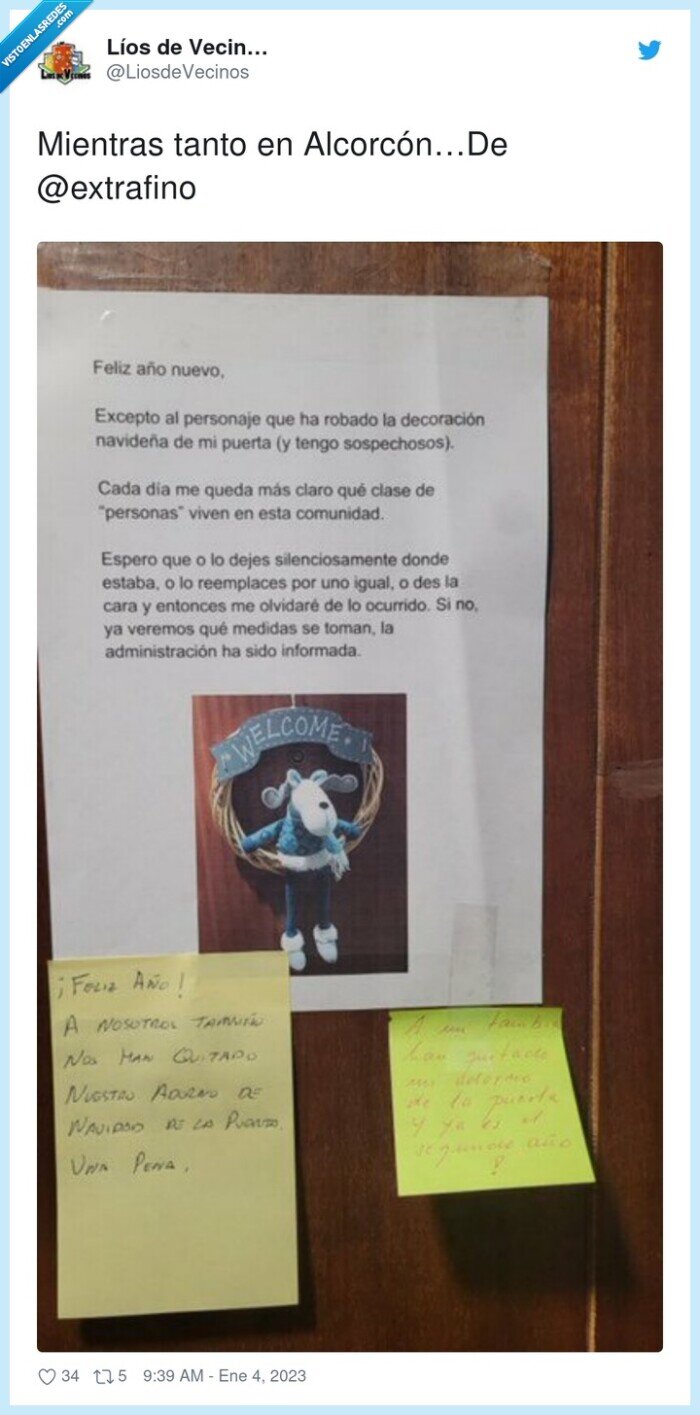 VISTOENLASREDES
.com
Líos de Vecin…
@LiosdeVecinos
Mientras tanto en Alcorcón…De
@extrafino
Feliz año nuevo,
Excepto al personaje que ha robado la decoración
navideña de mi puerta (y tengo sospechosos).
Cada día me queda más claro qué clase de
"personas" viven en esta comunidad.
Espero que o lo dejes silenciosamente donde
estaba, o lo reemplaces por uno igual, o des la
cara y entonces me olvidaré de lo ocurrido. Si no,
ya veremos qué medidas se toman, la
administración ha sido informada.
WELCOME
¡FELIZ AÑO!
A NOSOTROS TAMBIÉN
NOS HAN QUITADO
NUESTRO ADORNO DE
NAVIDAD DE LA PUERTA.
UNA PENA.
A mi también
han quitado
mi adorno
de la puerta
y ya es el
segundo año
!
34
5
9:39 AM - Ene 4, 2023